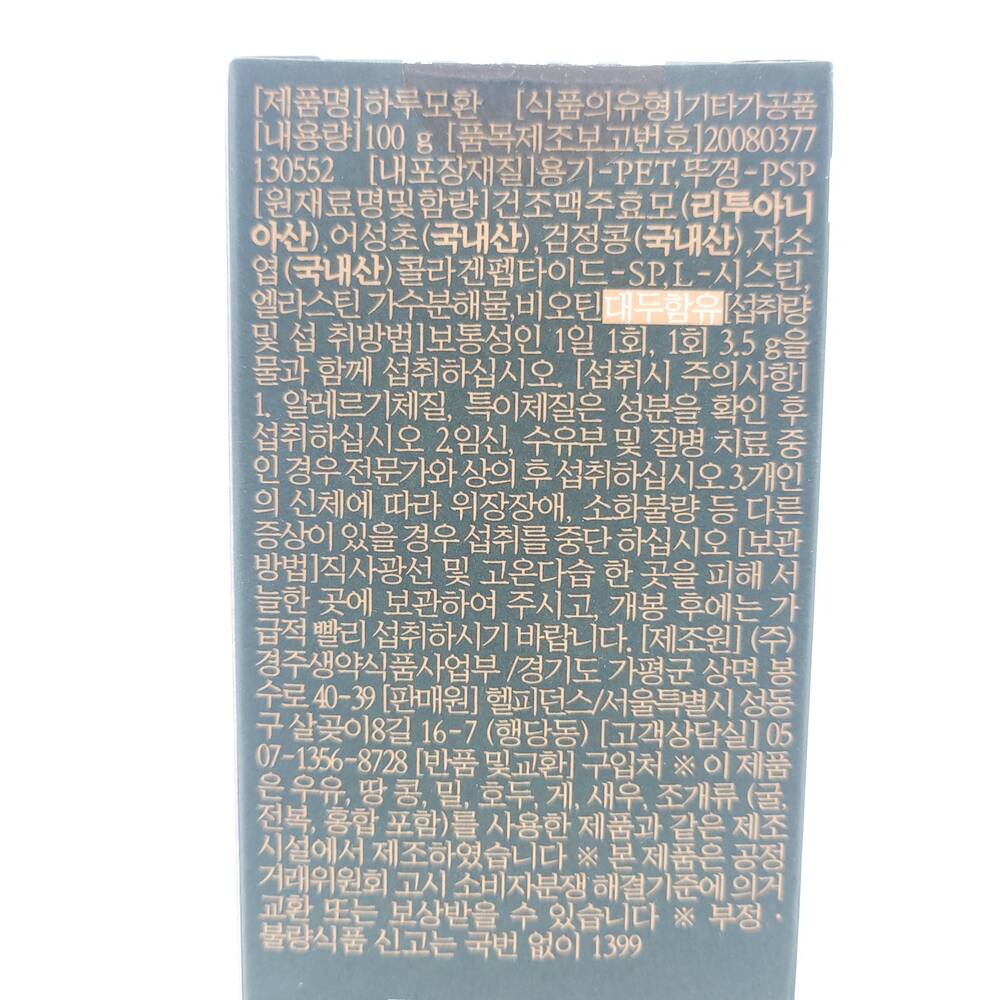 [제품명]하루모환 [식품의유형]기타가공품
[내용량]100 g [품목제조보고번호]20080377
130552 [내포장재질]용기-PET,뚜껑-PSP
[원재료명및함량]건조맥주효모(리투아니
아산),어성초(국내산),검정콩(국내산),자소
엽(국내산)콜라겐펩타이드-SP,L-시스틴,
엘라스틴 가수분해물,비오틴 대두함유[섭취량
및 섭 취방법]보통성인 1일 1회, 1회 3.5 g을
물과 함께 섭취하십시오. [섭취시 주의사항]
1. 알레르기체질, 특이체질은 성분을 확인 후
섭취하십시오 2.임신, 수유부 및 질병 치료 중
인 경우 전문가와 상의 후 섭취하십시오 3.개인
의 신체에 따라 위장장애, 소화불량 등 다른
증상이 있을 경우 섭취를 중단 하십시오 [보관
방법]직사광선 및 고온다습 한 곳을 피해 서
늘한 곳에 보관하여 주시고, 개봉 후에는 가
급적 빨리 섭취하시기 바랍니다. [제조원] (주)
경주생약식품사업부 /경기도 가평군 상면 봉
수로 40-39 [판매원] 헬피던스/서울특별시 성동
구 살곶이8길 16-7 (행당동) [고객상담실] 05
07-1356-8728 [반품 및교환] 구입처 ※ 이 제품
은 우유, 땅 콩, 밀, 호두, 게, 새우, 조개류 (굴,
전복, 홍합 포함)를 사용한 제품과 같은 제조
시설에서 제조하였습니다 ※ 본 제품은 공정
거래위원회 고시 소비자분쟁 해결기준에 의거
교환 또는 보상받을 수 있습니다 ※ 부정 ·
불량식품 신고는 국번 없이 1399